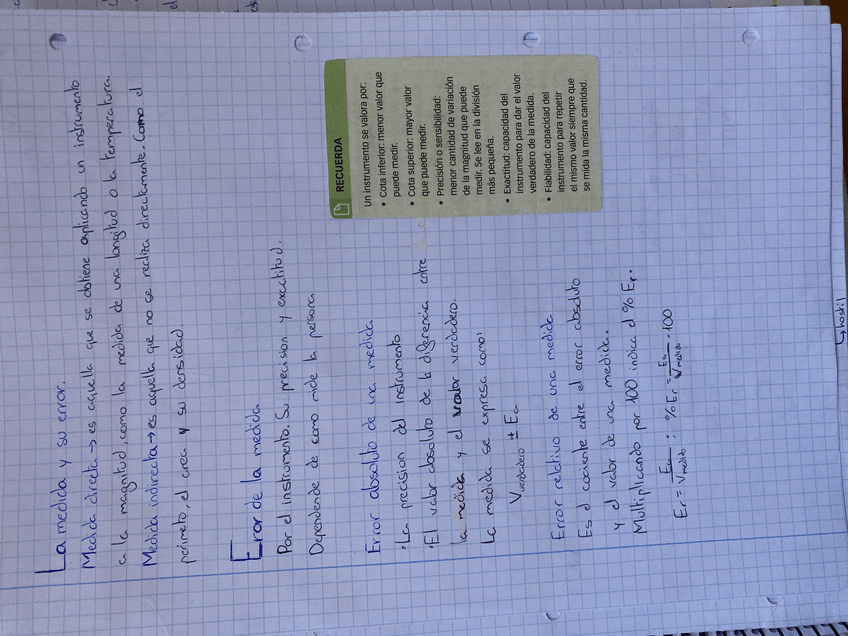 La medida y su error.
Medida directa → es aquella que se obtiene aplicando un instrumento
a la magnitud, como la medida de una longitud o la temperatura.
Medida indirecta → es aquella que no se realiza directamente. Como el
perimeto, el area y su densidad
Error de la medida
Por el instrumento. Su precision y exactitud.
Dependende de como mide la persona
RECUERDA
Un instrumento se valora por:
• Cota inferior: menor valor que
puede medir.
• Cota superior: mayor valor
que puede medir.
• Precisión o sensibilidad:
menor cantidad de variación
de la magnitud que puede
medir. Se lee en la división
más pequeña.
• Exactitud: capacidad del
instrumento para dar el valor
verdadero de la medida.
• Fiabilidad: capacidad del
instrumento para repetir
el mismo valor siempre que
se mida la misma cantidad.
Error absoluto de una medida
·La precision del instrumento
·El valor absoluto de la diferencia entre
la medida y el valor verdadero.
La medida se expresa como:
V verdadero ± Ea
Error relativo de una medida
Es el cociente entre el error absoluto
y el valor de una medida.
Multiplicando por 100 indica el % Er.
Er = Ea / Vmedido ; % Er = Ea / Vmedido · 100
↳ hostil